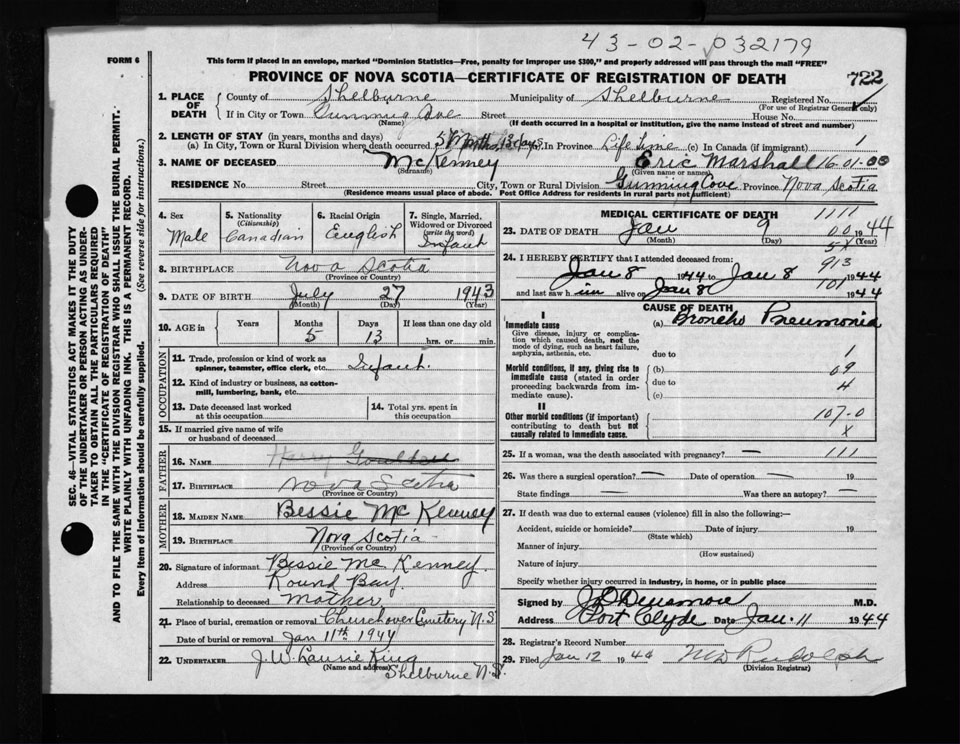 43-02-032179
FORM 6
This form if placed in an envelope, marked "Dominion Statistics—Free, penalty for improper use $300," and properly addressed will pass through the mail "FREE"
PROVINCE OF NOVA SCOTIA—CERTIFICATE OF REGISTRATION OF DEATH
722
1. PLACE OF DEATH
County of Shelburne Municipality of Shelburne Registered No.
(For use of Registrar General only)
If in City or Town Gunning Cove Street House No.
(Name) (If death occurred in a hospital or institution, give the name instead of street and number)
2. LENGTH OF STAY (in years, months and days)
(a) In City, Town or Rural Division where death occurred 5 Months 13 days (b) In Province Life Time (c) In Canada (if immigrant) 1
3. NAME OF DECEASED McKenney Eric Marshall 16-01-00
(Surname) (Given name or names)
RESIDENCE No. Street City, Town or Rural Division Gunning Cove Province Nova Scotia
(Residence means usual place of abode. Post Office Address for residents in rural parts not sufficient)
4. Sex Male
5. Nationality (Citizenship) Canadian
6. Racial Origin English
7. Single, Married, Widowed or Divorced (write the word) Infant
8. BIRTHPLACE Nova Scotia
(Province or Country)
9. DATE OF BIRTH July 27 1943
(Month) (Day) (Year)
10. AGE in Years Months Days If less than one day old
5 13 hrs. or min.
OCCUPATION
11. Trade, profession or kind of work as spinner, teamster, office clerk, etc. Infant.
12. Kind of industry or business, as cotton-mill, lumbering, bank, etc.
13. Date deceased last worked at this occupation
14. Total yrs. spent in this occupation
15. If married give name of wife or husband of deceased
FATHER
16. NAME Harry Goulden
17. BIRTHPLACE Nova Scotia
(Province or Country)
MOTHER
18. MAIDEN NAME Bessie McKenney
19. BIRTHPLACE Nova Scotia
(Province or Country)
20. Signature of informant Bessie McKenney.
Address Round Bay.
Relationship to deceased Mother
21. Place of burial, cremation or removal Churchover Cemetery N.S
Date of burial or removal Jan 11th 1944
22. UNDERTAKER J. W. Laurie King
(Name and address) Shelburne N.S.
MEDICAL CERTIFICATE OF DEATH 1111
23. DATE OF DEATH Jan 9 00 1944
(Month) (Day) 5X (Year)
24. I HEREBY CERTIFY that I attended deceased from: 913
Jan 8 1944 to Jan 8 1944
and last saw him alive on Jan 8 101 1944
CAUSE OF DEATH
I
Immediate cause (a) Broncho Pneumonia
Give disease, injury or complication which caused death, not the mode of dying, such as heart failure, asphyxia, asthenia, etc.
due to 1
Morbid conditions, if any, giving rise to immediate cause (stated in order proceeding backwards from immediate cause).
(b) 09
due to 4
(c)
II
Other morbid conditions (if important) contributing to death but not causally related to immediate cause.
107-0
X
25. If a woman, was the death associated with pregnancy? — 111
26. Was there a surgical operation? — Date of operation — 19
State findings — Was there an autopsy? —
27. If death was due to external causes (violence) fill in also the following:—
Accident, suicide or homicide? Date of injury 19
(State which)
Manner of injury
(How sustained)
Nature of injury
Specify whether injury occurred in industry, in home, or in public place
Signed by J D Densmore M.D.
Address Port Clyde Date Jan. 11 1944
28. Registrar's Record Number
29. Filed Jan 12 1944 Rudolph
(Division Registrar)
SEC. 46—VITAL STATISTICS ACT MAKES IT THE DUTY
OF THE UNDERTAKER OR PERSON ACTING AS UNDER-
TAKER TO OBTAIN ALL THE PARTICULARS REQUIRED
IN THE "CERTIFICATE OF REGISTRATION OF DEATH"
AND TO FILE THE SAME WITH THE DIVISION REGISTRAR WHO SHALL ISSUE THE BURIAL PERMIT.
WRITE PLAINLY WITH UNFADING INK. THIS IS A PERMANENT RECORD.
Every item of Information should be carefully supplied. (See reverse side for instructions.)